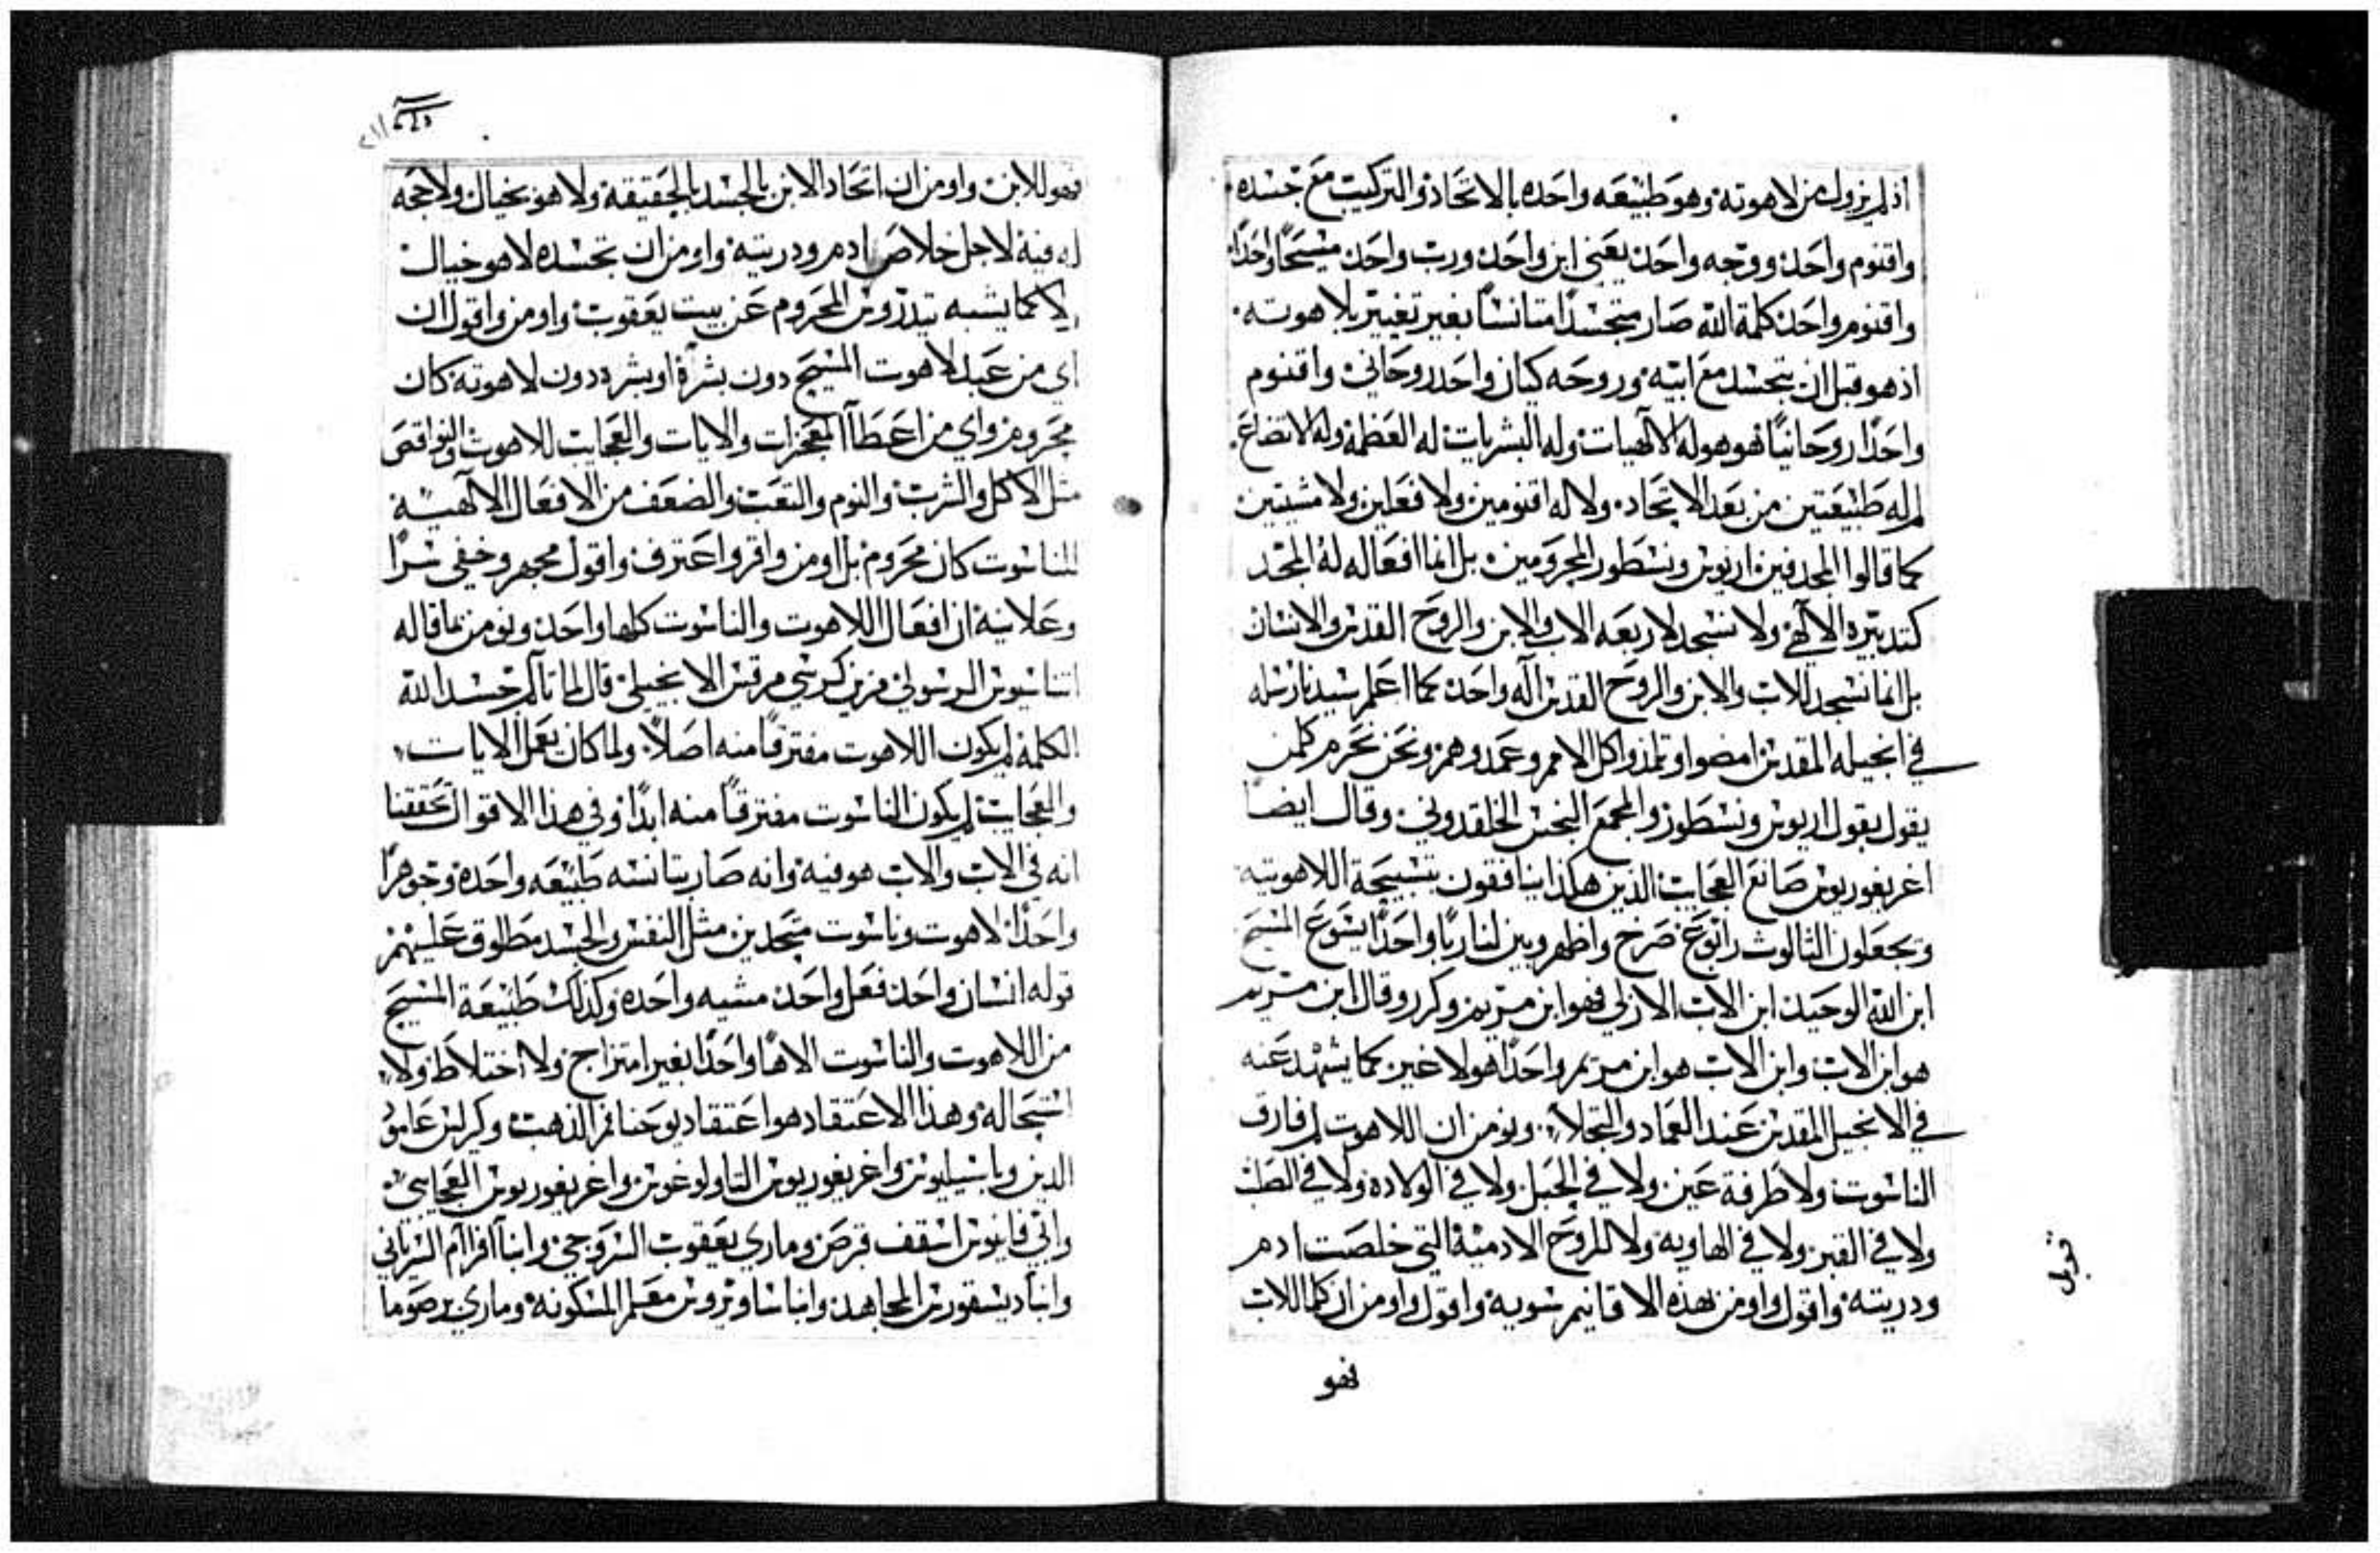 اذ لم يزول من لاهوته وهو طبيعه واحده بالاتحاد والتركيب مع جسده
واقنوم واحد ووجه واحد يعني ابن واحد ورب واحد مسيحًا واحدًا
واقنوم واحد كلمة الله صار متجسدًا متانسًا بغير تغيير بلاهوته
اذ هو قبل ان يتجسد مع ابيه وروحه كيان واحد روحاني واقنوم
واحدًا روحانيًا فهو هو له الالهيات وله البشريات له العظمة وله الاتضاع
لم له طبيعتين من بعد الاتحاد ولا له اقنومين ولا فعلين ولا مشيتين
كما قالوا المجدفين اريوس ونسطور المحرومين بل انما افعاله له المجد
كتدبيره الالهي ولا نسجد لاربعه الاب والابن والروح القدس والانسان
بل انما نسجد للاب والابن والروح القدس اله واحد كما اعلم سيدنا رسله
في انجيله المقدس امضوا وتلمذوا كل الامم وعمدوهم ونحن نحرم كلمن
يقول بقول اريوس ونسطور والمجمع النجس الخلقدوني وقال ايضًا
اغريغوريوس صانع العجايب الذين هكذا ينافقون بتسبيحة اللاهوتيه
ويجعلون الثالوث رابوع صرخ واظهر وبين لنا ربًا واحدًا يسوع المسيح
ابن الله الوحيد ابن الاب الازلي فهو ابن مريم وكرر وقال ابن مريم
هو ابن الاب وابن الاب هو ابن مريم واحدًا هو لا غير كما يشهد عنه
في الانجيل المقدس عند العماد والتجلا ونومن ان اللاهوت لم فارق
الناسوت ولا طرفة عين ولا في الحبل ولا في الولاده ولا في الصلب
ولا في القبر ولا في الهاويه ولا للروح الادمية التي خلصت ادم
ودريته واقول واومن بهذه الاقانيم سويه واقول واومن ان كما للاب
فهو
فهو للابن واومن ان اتحاد الابن بالجسد بالحقيقة ولا هو بخيال ولا حجه
له فيه لاجل خلاص ادم ودريته واومن ان تجسده لا هو خيال
لا كما يشبه تيدروس المحروم عن بيت يعقوب واومن واقول ان
اي من عبد لاهوت المسيح دون بشرة او بشره دون لاهوته كان
محروم واي من اعطا المعجزات والايات والعجايب للاهوت والنواقص
مثل الاكل والشرب والنوم والتعب والضعف من الافعال الالهية
للناسوت كان محروم بل اومن واقر واعترف واقول مجهر وخفي سرًا
وعلانية ان افعال اللاهوت والناسوت كلها واحد ونومن بما قاله
اتناسيوس الرسولي مزين كرسي مرقس الانجيلي قال لما تالم جسد الله
الكلمة لم يكون اللاهوت مفترقًا منه اصلًا ولما كان يعمل الايات
والعجايب لم يكون الناسوت مفترقًا منه ابدًا وفي هذا الاقوال تحققنا
انه في الاب والاب هو فيه وانه صار بتانسه طبيعه واحده وجوهرًا
واحدًا لاهوت وناسوت متحدين مثل النفس والجسد مطلوق عليهم
قوله انسان واحد فعل واحد مشيه واحده وكذلك طبيعة المسيح
من اللاهوت والناسوت الاهًا واحدًا بغير امتزاج ولا اختلاط ولا
استحاله وهذا الاعتقاد هو اعتقاد يوحنا فم الذهب وكرلس عامود
الدين وباسيليوس واغريغوريوس التاولوغوس واغريغوريوس العجايبي
وابي فانيوس اسقف قبرص وماري يعقوب السروجي وانبا افرام السرياني
وانبا ديسقورس المجاهد وانبا ساويروس معلم المسكونة وماري برصوما